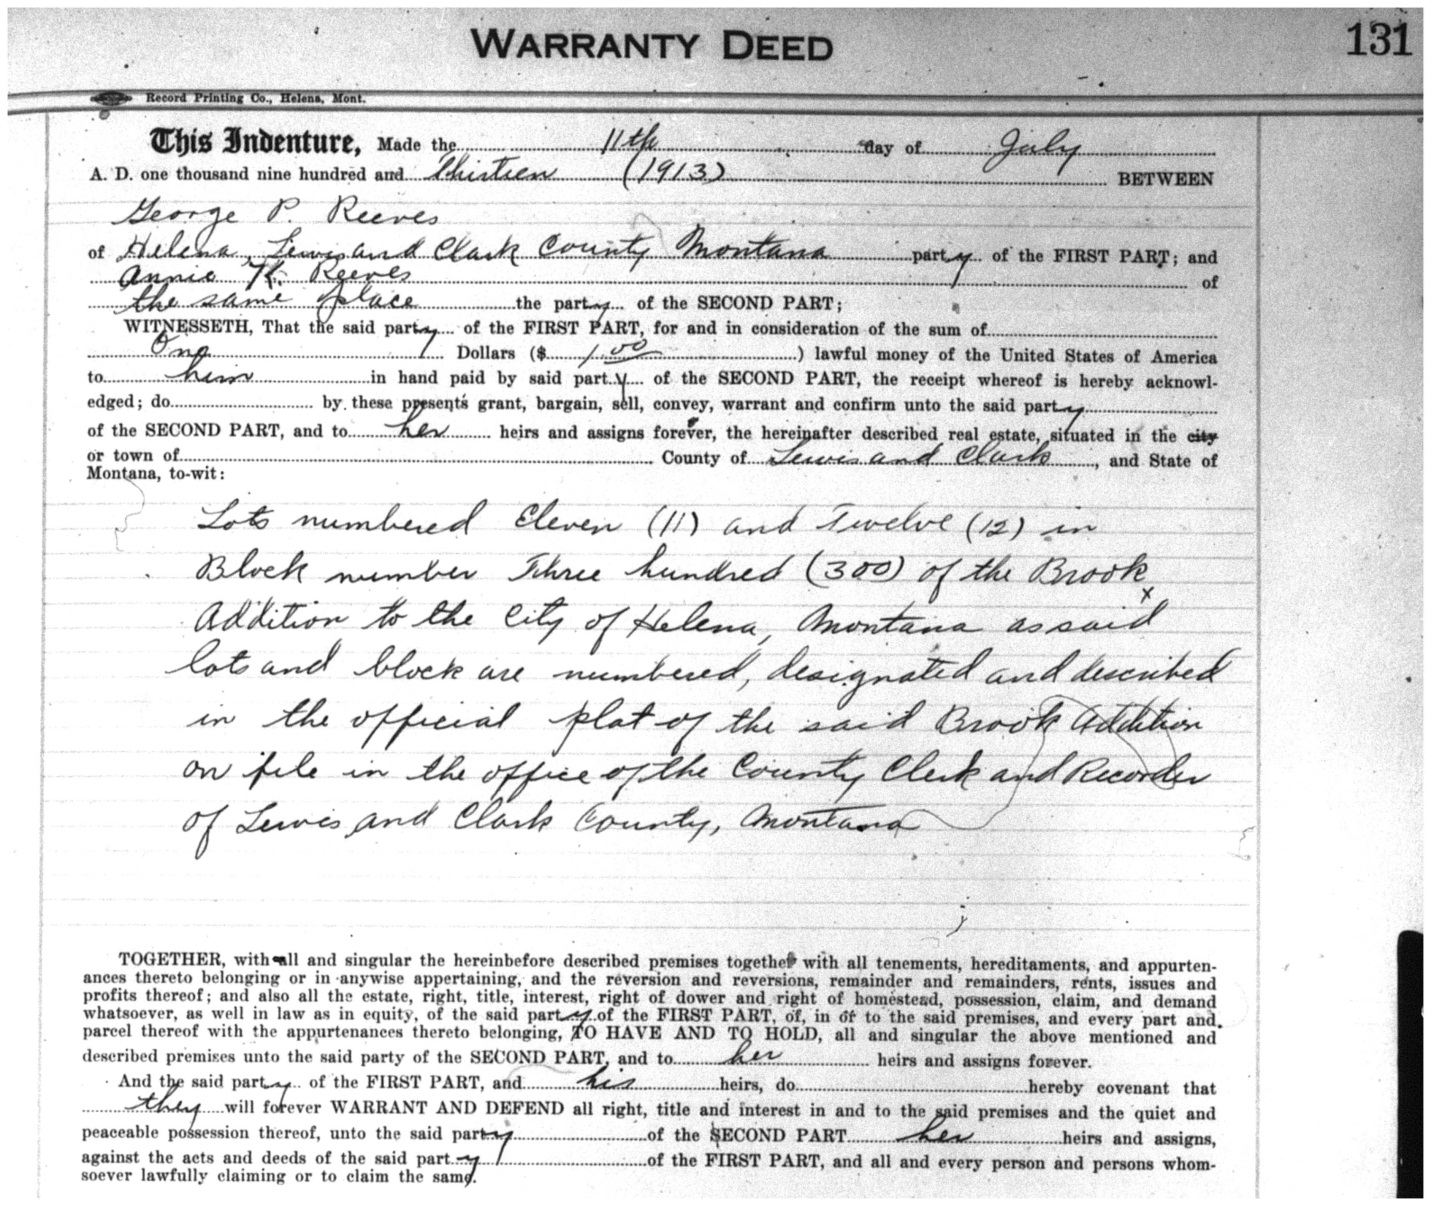 WARRANTY DEED 131
Record Printing Co., Helena, Mont.
This Indenture, Made the 11th day of July
A. D. one thousand nine hundred and Thirteen (1913) BETWEEN
George P. Reeves
of Helena, Lewis and Clark County Montana party of the FIRST PART; and
Annie K. Reeves of
the same place the party of the SECOND PART;
WITNESSETH, That the said party of the FIRST PART, for and in consideration of the sum of
One Dollars ($ 1.00 ) lawful money of the United States of America
to him in hand paid by said party of the SECOND PART, the receipt whereof is hereby acknowl-
edged; do by these presents grant, bargain, sell, convey, warrant and confirm unto the said party
of the SECOND PART, and to her heirs and assigns forever, the hereinafter described real estate, situated in the city
or town of County of Lewis and Clark, and State of
Montana, to-wit:
Lots numbered Eleven (11) and Twelve (12) in
Block number Three hundred (300) of the Brook
Addition to the City of Helena, Montana as said
lots and block are numbered, designated and described
in the official plat of the said Brook Addition
on file in the office of the County Clerk and Recorder
of Lewis and Clark County, Montana
TOGETHER, with all and singular the hereinbefore described premises together with all tenements, hereditaments, and appurten-
ances thereto belonging or in anywise appertaining, and the reversion and reversions, remainder and remainders, rents, issues and
profits thereof; and also all the estate, right, title, interest, right of dower and right of homestead, possession, claim, and demand
whatsoever, as well in law as in equity, of the said party of the FIRST PART, of, in or to the said premises, and every part and
parcel thereof with the appurtenances thereto belonging, TO HAVE AND TO HOLD, all and singular the above mentioned and
described premises unto the said party of the SECOND PART, and to her heirs and assigns forever.
And the said party of the FIRST PART, and his heirs, do hereby covenant that
they will forever WARRANT AND DEFEND all right, title and interest in and to the said premises and the quiet and
peaceable possession thereof, unto the said party of the SECOND PART her heirs and assigns,
against the acts and deeds of the said party of the FIRST PART, and all and every person and persons whom-
soever lawfully claiming or to claim the same.